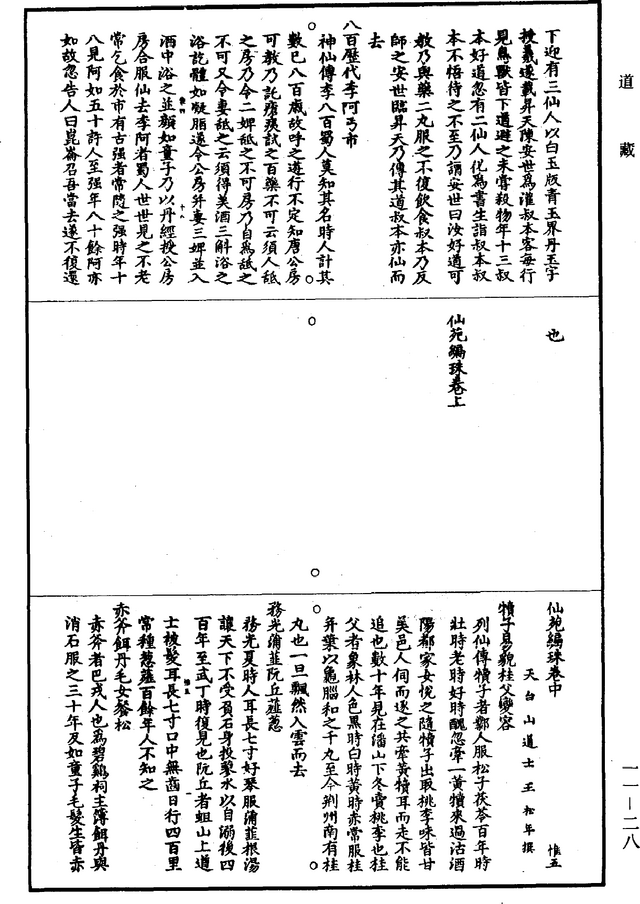 道藏
下迎有三仙人以白玉版青玉界丹玉字
授羲遂載昇天陳安世爲灌叔本客每行
見鳥獸皆下道避之未嘗殺物年十三叔
本好道忽有二仙人化爲書生詣叔本叔
本不悟待之不至乃謂安世曰汝好道可
教乃與藥二丸服之不復飲食叔本乃反
師之安世臨昇天乃傳其道叔本亦仙而
去
八百歷代李阿丐市
神仙傳李八百蜀人莫知其名時人計其
數已八百歲故呼之遊行不定知唐公房
可教乃託瘡痍試之百藥不可云須人舐
之房乃令二婢舐之不可房乃自爲舐之
不可又令妻舐之云須得美酒三斛浴之
浴訖體如凝脂遂令公房并妻三婢並入
酒中浴之並顏如童子乃以丹經授公房
房合服仙去李阿者蜀人世世見之不老
常乞食於市有古强者常隨之强時年十
八見阿如五十許人至强年八十餘阿亦
如故忽告人曰崑崙召吾當去遂不復還
也
仙苑編珠卷上
仙苑編珠卷中
惟五
天台山道士王松年撰
犢子易貌桂父變容
列仙傳犢子者鄴人服松子茯苓百年時
壯時老時好時醜忽牽一黃犢來過沽酒
陽都家女悅之隨犢子出取桃李味皆甘
吴邑人伺而逐之共牽黃犢耳而走不能
追也數十年見在潘山下冬賣桃李也桂
父者象林人色黑時白時黃時赤常服桂
并葉以龜腦和之千丸至今荆州南有桂
丸也一旦飄然入雲而去
務光蒲韮阮丘薤葱
務光夏時人耳長七寸好琴服蒲韮根湯
讓天下不受負石身投蓼水以自溺後四
百年至武丁時復見也阮丘者蛆山上道
士被髮耳長七寸口中無齒日行四百里
常種葱薤百餘年人不知之
赤斧餌丹毛女飡松
赤斧者巴戎人也爲碧鷄祠主簿餌丹與
消石服之三十年反如童子毛髮生皆赤
一一—二八